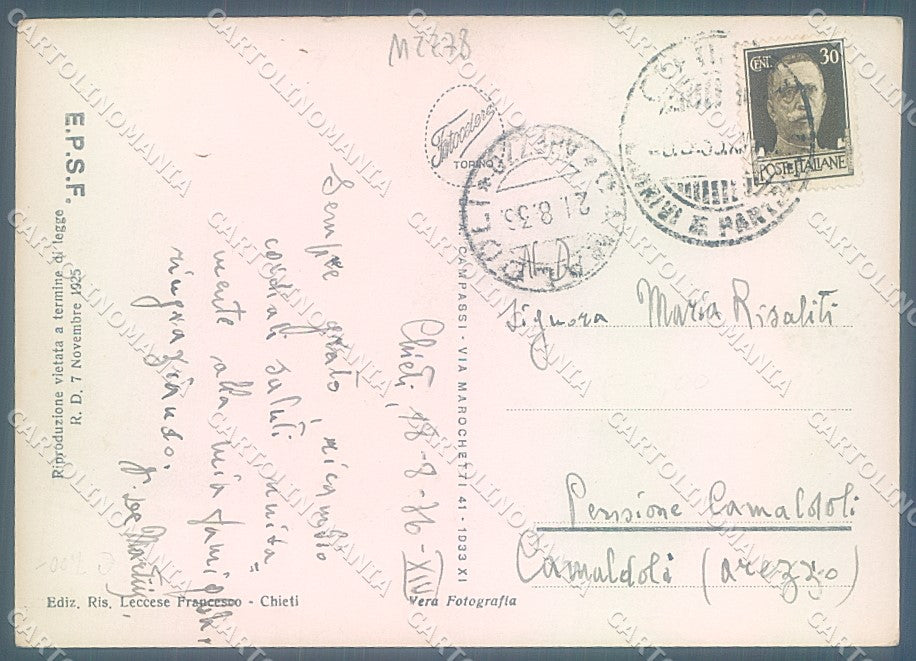 M2278
CENT. 30
POSTE ITALIANE
Fotocelere
TORINO
E.P.S.F.
Riproduzione vietata a termine di legge
R. D. 7 Novembre 1925
CAMPASSI - VIA MAROCHETTI 41 - 1933 XI
CAMALDOLI * (AREZZO) *
21.8.36
ARRIVI E PARTENZE
Chieti, 18-8-36-XIV
Sempre grato, ricambio
cordiali saluti
mente alla mia famiglia,
ringraziando.
Signora Maria Risaliti
Pensione Camaldoli
Camaldoli (arezzo)
Ediz. Ris. Leccese Francesco - Chieti
Vera Fotografia
CARTOLINOMANIA